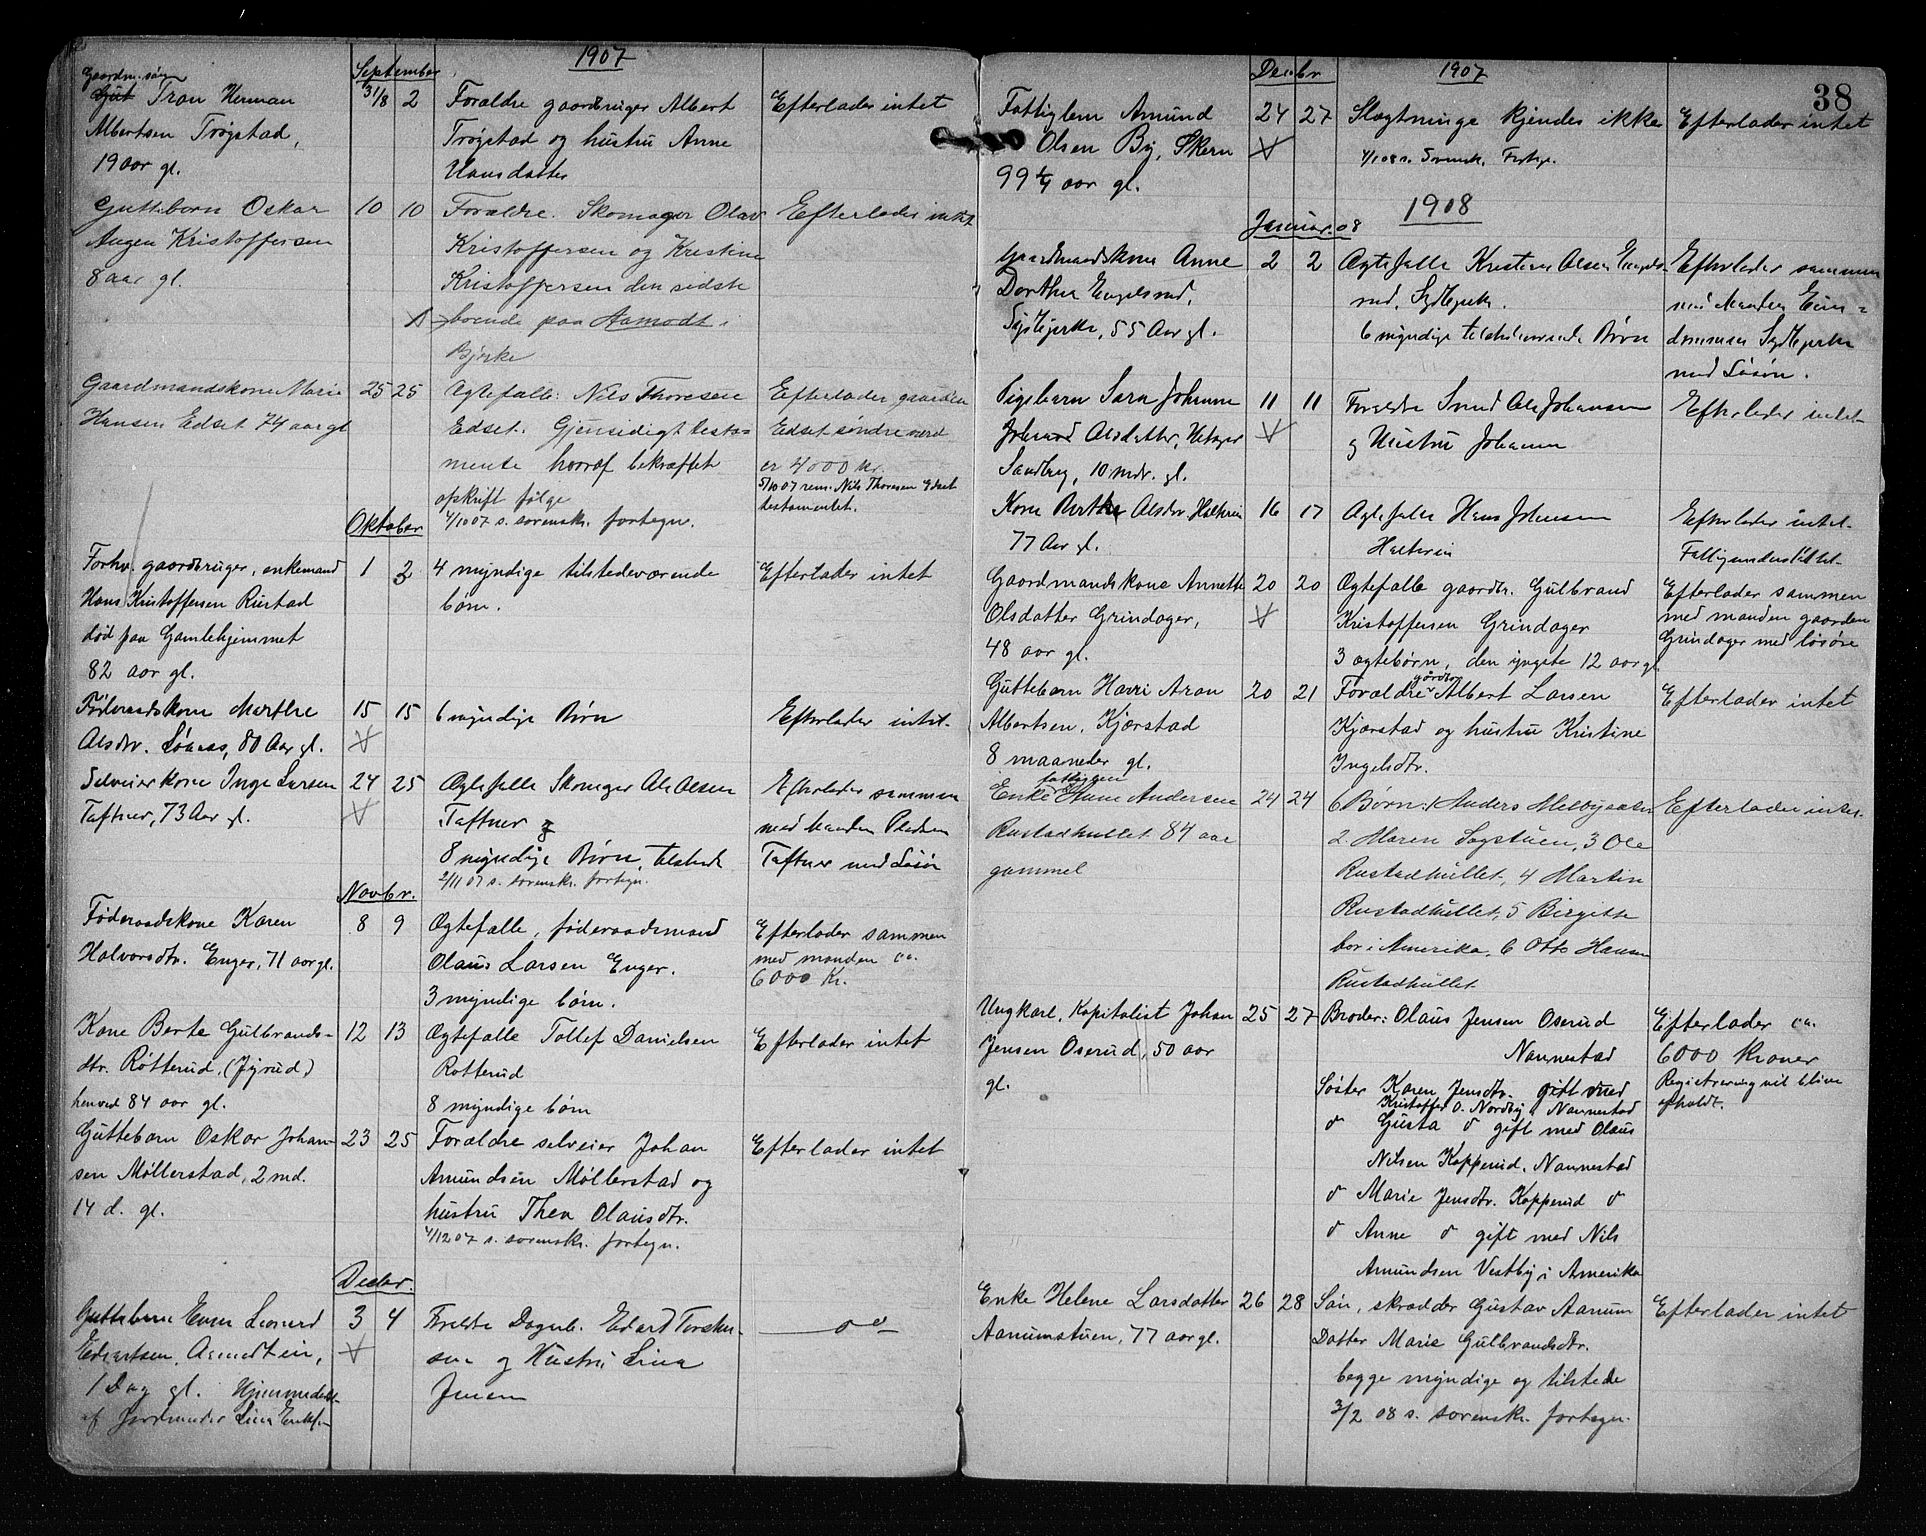 1907
September
Gaardm. søn
Gut Tron Herman 31/8 2 Forældre gaardbruger Albert Efterlader intet
Albertsen Trøgstad, Trøgstad og hustru Anne
19 aar gl. Hansdatter
Guttebarn Oskar 10 10 Forældre. Skomager Olav Efterlader intet
Kristoffersen Kristoffersen og Kristine
8 aar gl. Kristoffersen den sidste
boende paa Aamodt i
Bjerke
Gaardmandskone Marie 25 25 Ægtefælle: Nils Thoresen Efterlader gaarden
Hansen Edset 74 aar gl Edset. Gjensidigt testa- Edset søndre værd
mente hvoraf bekræftet er 4000 kr.
opskrift følge 5/10 07 rem. Nils Thoresen Edset
4/10 07 s. sorenskr. fortegn. testamentet.
Oktober
Forhv. gaardbruger, enkemand 1 2 4 myndige tilstedeværende Efterlader intet
Hans Kristoffersen Rustad børn.
død paa Gamlehjemmet
82 aar gl.
Føderaadskone Marthe 15 15 6 myndige Børn Efterlader intet.
Olsdtr. Sønnes, 80 Aar gl.
Selveierkone Inge Larsen 24 25 Ægtefælle Skomager Ole Olsen Efterlader sammen
Taftner, 73 Aar gl. Taftner og med Manden Pladsen
8 myndige Børn, tilstede Taftner med Løsør
2/11 07 s. sorenskr. fortegn.
Novbr.
Føderaadskone Karen 8 9 Ægtefælle, føderaadsmand Efterlader sammen
Halvorsdtr. Enger, 71 aar gl. Olaus Larsen Enger. med manden ca.
3 myndige børn. 6000 Kr.
Kone Berte Gulbrands- 12 13 Ægtefælle Tollef Danielsen Efterlader intet
dtr. Røtterud, (Jyrud) Rotterud
henved 84 aar gl. 8 myndige børn
Guttebarn Oskar Johan- 23 25 Forældre selveier Johan Efterlader intet
sen Møllerstad, 2 md. Amundsen Møllerstad og
14 d. gl. hustru Thea Olausdtr.
4/12 07 s. sorenskr. fortegn.
Decbr.
Guttebarn Even Leonard 3 4 Foreldre Dagarb. Edvart Torsten-
Edvartsen, sen og Hustru Lina
1 Dag gl. Hjemmedøbt Jensen
af Jordmoder Lina
38
Decbr 1907
Fattiglem Amund 24 27 Slægtninge kjendes ikke Efterlader intet
Olsen By, Skern 4/1 08 s. Sorensk. Fortegn.
99 1/4 aar gl.
1908
Januar 08
Gaardmandskone Anne 2 2 Ægtefælle Kristian Olsen Engels- Efterlader sammen
Dorthea Engelsrud, rud, Sydbjerke. med Manden Eien-
Sydbjerke, 55 Aar gl. 6 myndige tilstedeværende Børn dommen Sydbjerke
med Løsøre.
Pigebarn Sara Johanne 11 11 Forældre Smed Ole Johansen Efterlader intet
Olsdatter, og Hustru Johanne
Sandberg, 10 mdr. gl.
Kone Berthe Olsdtr. 16 17 Ægtefælle Hans Johnsen Efterlader intet
77 Aar gl. Fattigunderstøttet.
Gaardmandskone Annette 20 20 Ægtefælle gaardbr. Gulbrand Efterlader sammen
Olsdatter Grindager, Kristoffersen Grindager med manden gaarden
48 aar gl. 3 ægtebørn, den yngste 12 aar gl Grindager med løsøre
Guttebarn Havri Aron 20 21 Forældre gårdbr Albert Larsen Efterlader intet
Albertsen, Kjærstad Kjærstad og hustru Kristine
8 maaneder gl. Ingelsdtr.
fattiglem
Enke Anne Andersen 24 24 6 Børn: 1 Anders Melbyeier Efterlader intet.
Rustadhullet 84 aar 2. Maren Sagstuen, 3 Ole
gammel Rustadhullet, 4 Martin
Rustadhullet, 5 Birgitte
bor i Amerika, 6 Otto Hansen
Rustadhullet
Ungkarl, Kapitalist Johan 25 27 Broder: Olaus Jensen Oserud Efterlader ca.
Jensen Oserud, 50 aar Nannestad 6000 kroner
gl. Søster Karen Jensdtr. gift med Registrering vil blive
Kristoffer O. Nordby i Nannestad afholdt.
do Gusta do gift med Olaus
Nilsen Kopperud, Nannestad
do Marie Jensdtr. Kopperud do
do Anne do gift med Nils
Amundsen Vestby i Amerika
Enke Helene Larsdatter 26 28 Søn, skrædder Gustav Aanum Efterlader intet
Aanumstuen, 77 aar gl. Datter Marie Gulbrandsdtr.
begge myndige og tilstede
3/2 08 s. sorenskr. fortegn.